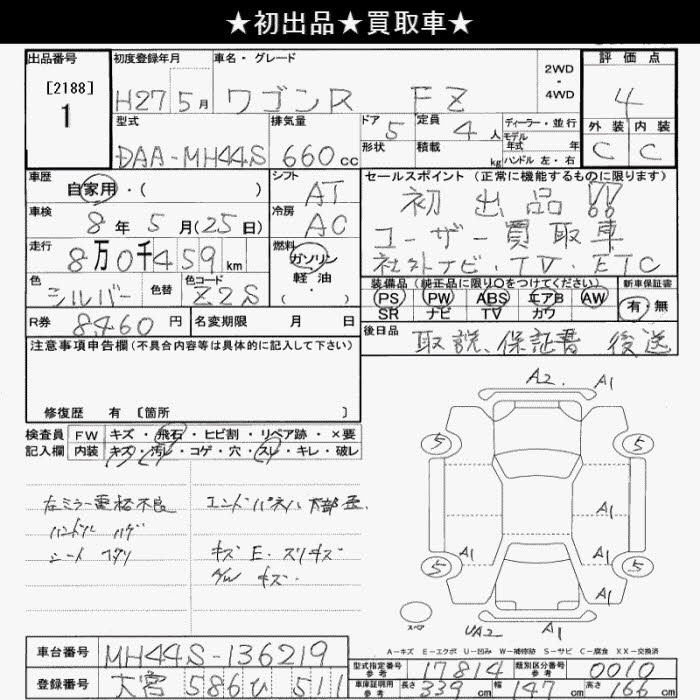 ★初出品★買取車★
出品番号 初度登録年月 車名・グレード 2WD・4WD 評価点
[2188]
1 H27 5月 ワゴンR FZ 4
型式 排気量 ドア 5 定員 4人 ディーラー・並行 外装 内装
DAA-MH44S 660cc 形状 積載 kg モデル年式 年 ハンドル 左・右 C C
車歴 自家用・( ) シフト AT セールスポイント (正常に機能するものに限ります)
初出品!!
車検 8年5月(25日) 冷房 AC ユーザー買取車
走行 8万0千459km 燃料 ガソリン 軽油 (・) 社外ナビ・TV・ETC
色 シルバー 色替 色コード Z2S 装備品 (純正品に限り○をつけてください) 新車保証書
PS PW ABS エアB AW 有・無
SR ナビ TV カワ
R券 8460円 名変期限 月 日 後日品 取説、保証書 後送
注意事項申告欄(不具合内容等は具体的に記入して下さい)
修復歴 有 [箇所 ]
検査員 FW キズ・飛石・ヒビ割・リペア跡・×要
記入欄 内装 キズ・汚レ・コゲ・穴・スレ・キレ・破レ
左ミラー電格不良 エンドパネル下部
ハンドル ハゲ
シート キズ E・スリキズ
A/W キズ.
A2. A1
5 5
A1
A1
5 A1 A1 5
スペア UA2 A1
A-キズ E-エクボ U-凹み W-補修跡 S-サビ C-腐食 XX-交換済
車台番号 MH44S-136219 型式指定番号 参考 17814 類別区分番号 参考 0010
登録番号 大宮 586 ひ 511 車庫証明用 参考 長さ 339cm 幅 147cm 高さ 166cm